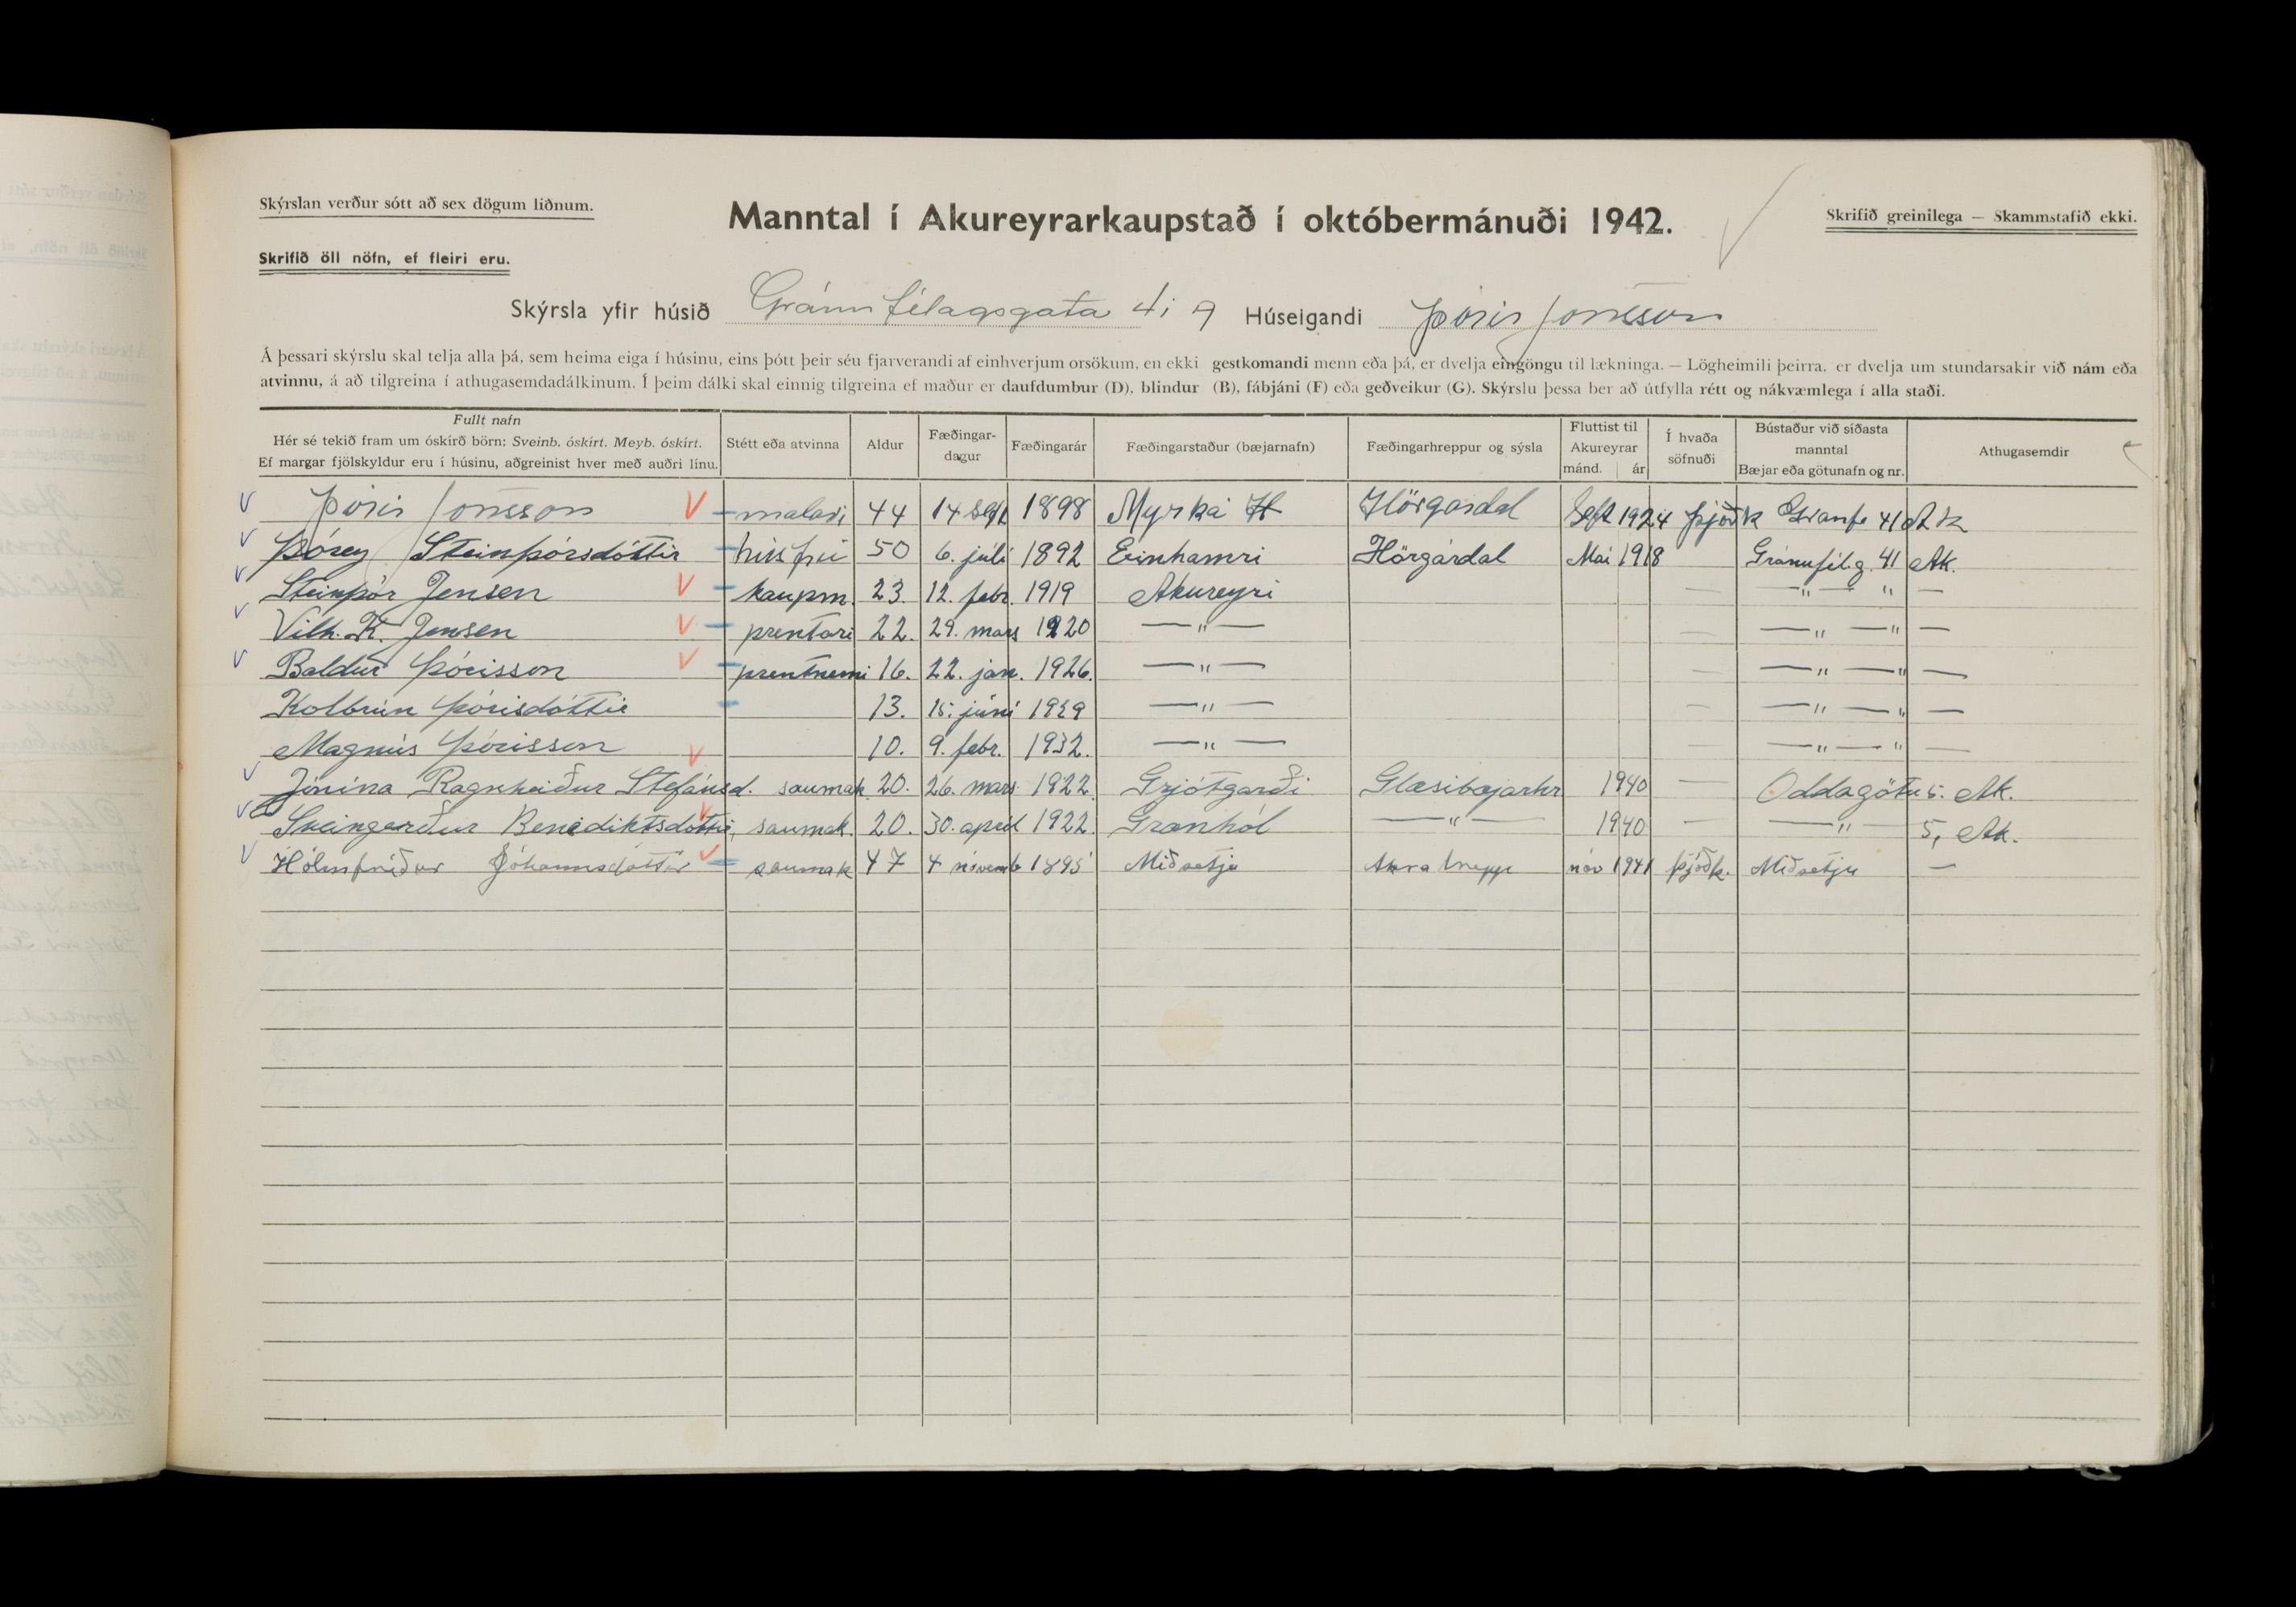 Skýrslan verður sótt að sex dögum liðnum.
Manntal í Akureyrarkaupstað í októbermánuði 1942.
Skrifið greinilega — Skammstafið ekki.
Skrifið öll nöfn, ef fleiri eru.
Skýrsla yfir húsið Gránufélagsgata 41 Húseigandi Þórir Jónsson
Á þessari skýrslu skal telja alla þá, sem heima eiga í húsinu, eins þótt þeir séu fjarverandi af einhverjum orsökum, en ekki gestkomandi menn eða þá, er dvelja eingöngu til lækninga. — Lögheimili þeirra. er dvelja um stundarsakir við nám eða
atvinnu, á að tilgreina í athugasemdadálkinum. Í þeim dálki skal einnig tilgreina ef maður er daufdumbur (D), blindur (B), fábjáni (F) eða geðveikur (G). Skýrslu þessa ber að útfylla rétt og nákvæmlega í alla staði.
Fullt nafn
Hér sé tekið fram um óskírð börn: Sveinb. óskírt. Meyb. óskírt.
Ef margar fjölskyldur eru í húsinu, aðgreinist hver með auðri línu.
Stétt eða atvinna
Aldur
Fæðingar-
dagur
Fæðingarár
Fæðingarstaður (bæjarnafn)
Fæðingarhreppur og sýsla
Fluttist til
Akureyrar
mánd. ár
Í hvaða
söfnuði
Bústaður við síðasta
manntal
Bæjar eða götunafn og nr.
Athugasemdir
Þórir Jónsson malari 44 14 sept 1898 Myrká Hörgárdal Sept 1924 þjóðk Gránufé 41 Ak
Þórey Steinþórsdóttir húsfrú 50 6. júlí 1892 Einhamri Hörgárdal Maí 1918 Gránufél.g. 41 Ak.
Steinþór Jensen kaupm. 23. 12. febr. 1919 Akureyri — — " — " —
Vilh. K. Jensen prentari 22. 29. mars 1920 — " — — — " — " —
Baldur Þórisson prentnemi 16. 22. jan. 1926. — " — — " — " —
Kolbrún Þórisdóttir 13. 15. júní 1929 — " — — — " — " —
Magnús Þórisson 10. 9. febr. 1932. — " — — — " — " —
Jónína Ragnheiður Stefánsd. saumak. 20. 26. mars 1922. Grjótgarði Glæsibæjarhr 1940 — Oddagötu 5. Ak.
Sveingerður Benediktsdóttir, saumak. 20. 30. apríl 1922. Grænhól — " — 1940 — — " — 5, Ak.
Hólmfríður Jóhannsdóttir saumak 47 4 novemb 1895 Miðsetju Akra hrepp nóv 1941 þjóðk. Miðsetju —